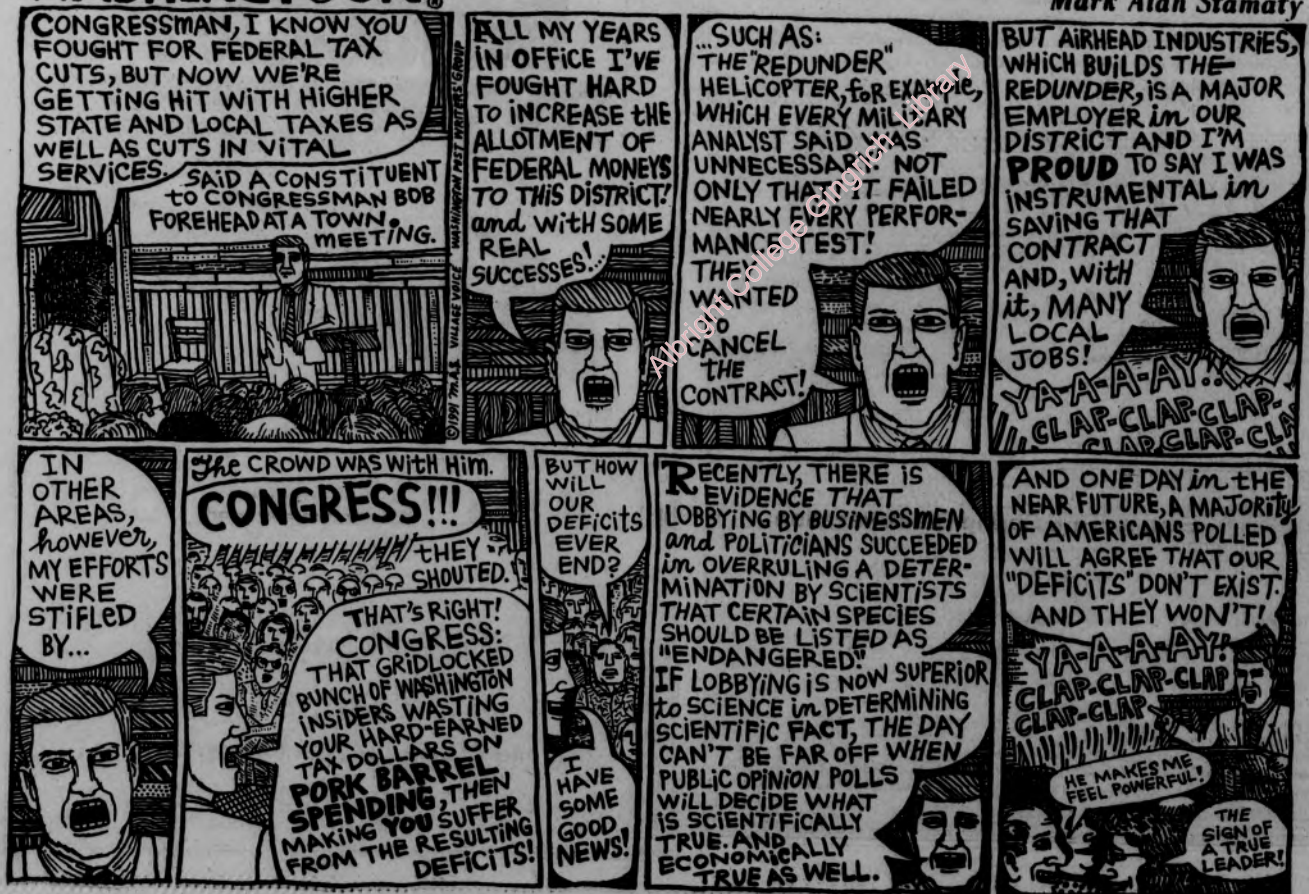 WASHINGTOON®
Mark Alan Stamaty
CONGRESSMAN, I KNOW YOU
FOUGHT FOR FEDERAL TAX
CUTS, BUT NOW WE'RE
GETTING HIT WITH HIGHER
STATE AND LOCAL TAXES AS
WELL AS CUTS IN VITAL
SERVICES.
SAID A CONSTITUENT
to CONGRESSMAN BOB
FOREHEAD AT A TOWN
MEETING.
©1991 M.A.S. VILLAGE VOICE WASHINGTON POST WRITERS GROUP
ALL MY YEARS
IN OFFICE I'VE
FOUGHT HARD
TO INCREASE the
ALLOTMENT OF
FEDERAL MONEYS
TO THIS DISTRICT!
and WITH SOME
REAL
SUCCESSES!...
...SUCH AS:
THE "REDUNDER"
HELICOPTER, for EXAMPLE,
WHICH EVERY MILITARY
ANALYST SAID WAS
UNNECESSARY. NOT
ONLY THAT, IT FAILED
NEARLY EVERY PERFOR-
MANCE TEST!
THEY
WANTED
TO
CANCEL
THE
CONTRACT!
BUT AIRHEAD INDUSTRIES,
WHICH BUILDS THE
REDUNDER, IS A MAJOR
EMPLOYER in OUR
DISTRICT AND I'M
PROUD TO SAY I WAS
INSTRUMENTAL in
SAVING THAT
CONTRACT
AND, WITH
it, MANY
LOCAL
JOBS!
YA-A-A-AY!!
CLAP-CLAP-CLAP-
CLAP-CLAP-CLA
IN
OTHER
AREAS,
however,
MY EFFORTS
WERE
STIFLED
BY...
The CROWD WAS WITH HIM.
CONGRESS!!!
THEY
SHOUTED.
THAT'S RIGHT!
CONGRESS:
THAT GRIDLOCKED
BUNCH OF WASHINGTON
INSIDERS WASTING
YOUR HARD-EARNED
TAX DOLLARS ON
PORK BARREL
SPENDING, THEN
MAKING YOU SUFFER
FROM THE RESULTING
DEFICITS!
BUT HOW
WILL
OUR
DEFICITS
EVER
END?
I
HAVE
SOME
GOOD
NEWS!
RECENTLY, THERE IS
EVIDENCE THAT
LOBBYING BY BUSINESSMEN
and POLITICIANS SUCCEEDED
in OVERRULING A DETER-
MINATION BY SCIENTISTS
THAT CERTAIN SPECIES
SHOULD BE LISTED AS
"ENDANGERED."
IF LOBBYING IS NOW SUPERIOR
to SCIENCE in DETERMINING
SCIENTIFIC FACT, THE DAY
CAN'T BE FAR OFF WHEN
PUBLIC OPINION POLLS
WILL DECIDE WHAT
IS SCIENTIFICALLY
TRUE. AND
ECONOMICALLY
TRUE AS WELL.
AND ONE DAY in tHE
NEAR FUTURE, A MAJORITY
OF AMERICANS POLLED
WILL AGREE THAT OUR
"DEFICITS" DON'T EXIST.
AND THEY WON'T!
YA-A-A-AY!
CLAP-CLAP-CLAP
CLAP-CLAP
HE MAKES ME
FEEL POWERFUL!
THE
SIGN OF
A TRUE
LEADER!
Albright College Gingrich Library